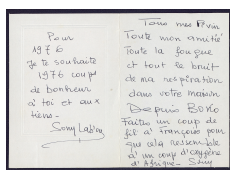 Pour
1976
Je te souhaite
1976 coups
de bonheur
à toi et aux
tiens -
Sony Labou
Tous mes
Toute mon amitié
Toute la fougue
et tout le bruit
de ma respiration
dans votre maison
Depuis
Faites un coup de
fil à François pour
que cela ressemble
à un coup d'oxygène
d'Afrique - Sony